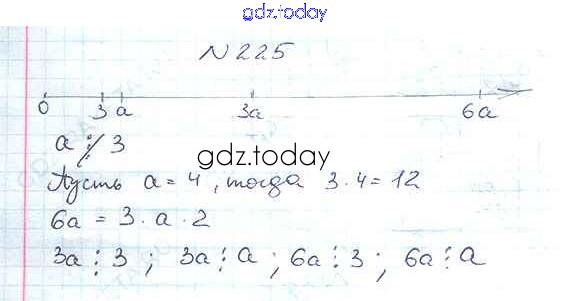 gdz.today
N225
0 3 a 3a 6a
a ⋮̸ 3
gdz.today
Пусть a = 4, тогда 3 · 4 = 12
6a = 3 · a · 2
3a ⋮ 3 ; 3a ⋮ a ; 6a ⋮ 3 ; 6a ⋮ a